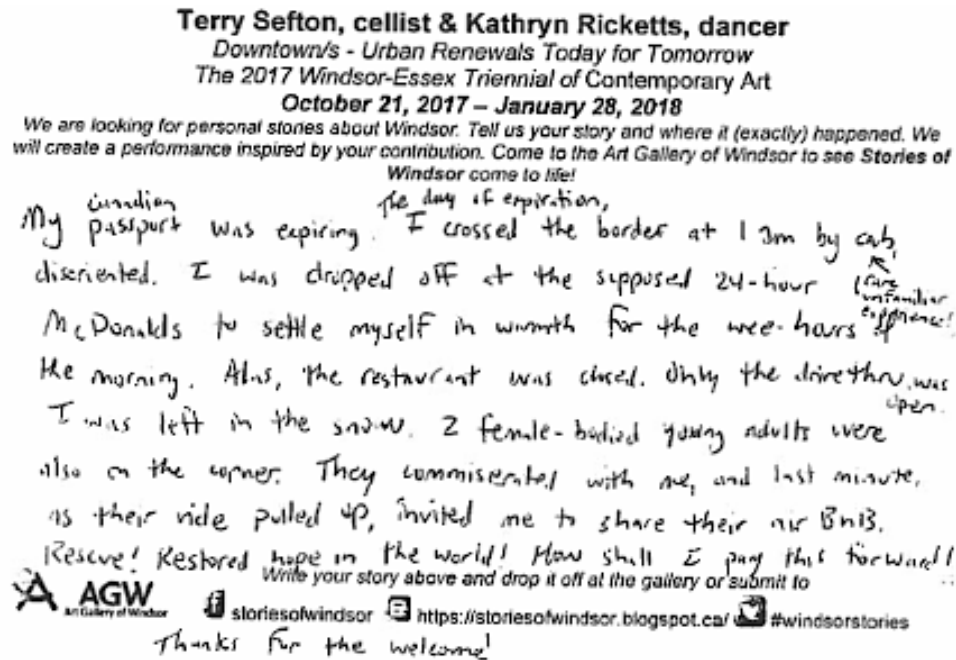 Terry Sefton, cellist & Kathryn Ricketts, dancer
Downtown/s - Urban Renewals Today for Tomorrow
The 2017 Windsor-Essex Triennial of Contemporary Art
October 21, 2017 – January 28, 2018
We are looking for personal stories about Windsor. Tell us your story and where it (exactly) happened. We
will create a performance inspired by your contribution. Come to the Art Gallery of Windsor to see Stories of
Windsor come to life!
canadian the day of expiration,
My passport was expiring. I crossed the border at 1 am by cab,
disoriented. I was dropped off at the supposed 24-hour (rare
unfamiliar
experience!
McDonalds to settle myself in warmth for the wee-hours of
the morning. Alas, the restaurant was closed. Only the drive thru was
open.
I was left in the snow. 2 female-bodied young adults were
also on the corner. They commiserated with me, and last minute,
as their ride pulled up, invited me to share their air BnB.
Rescue! Restored hope in the world! How shall I pay this forward!
Write your story above and drop it off at the gallery or submit to
AGW
Art Gallery of Windsor
storiesofwindsor https://storiesofwindsor.blogspot.ca/ #windsorstories
Thanks for the welcome!